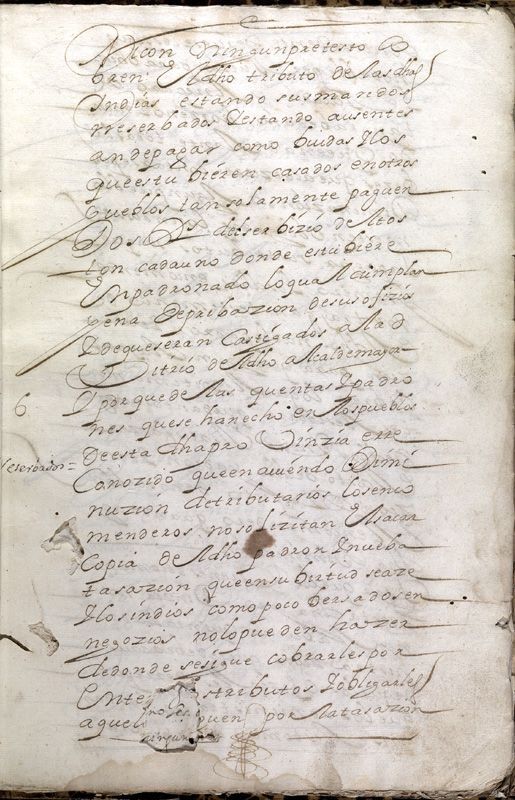 Nicon Ningun pretesto Co
bren El dho tributo de las dhas
Indias estando sus maridos
rreserbados Y estando ausentes
an de pagar como biudas Y los
que estubieren casados en otros
pueblos tan solamente paguen
Dos Ps del serbizio de los
ton cada uno donde estubiere
Enpadronado lo qual cumplan
pena de pribazion de su ofizio
Y de que seran Castigados a la d
Vitrio de el dho alcalde mayor
6 Y por que de las quentas Y padro
nes que se han echo en los pueblos
reserbados= De esta dha pro Vinzia e rre
Conozido que en auiendo Dimi
nuzion de tributarios los enco
menderos no solizitan El sacar
Copia de el dho padron Y nueba
tasazion que en su birtud se aze
Y los indios como poco bersados en
negozios no lo pueden hazer
de donde se sigue cobrarles por
Ente tributos Y obligarles
a que paguen por la tasazion